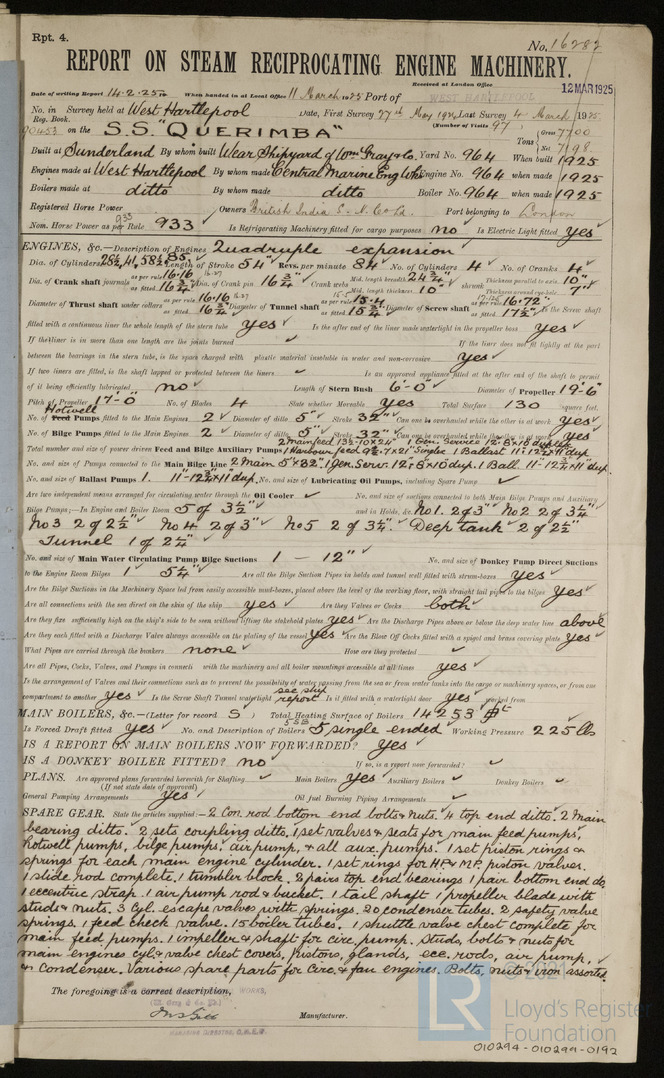 Rpt. 4.
No. 16282
REPORT ON STEAM RECIPROCATING ENGINE MACHINERY.
Received at London Office 12 MAR 1925
Date of writing Report 14.2.25 When handed in at Local Office 11 March 1925 Port of WEST HARTLEPOOL
No. in Survey held at West Hartlepool Date, First Survey 27th May 1924 Last Survey 4 March 1925
Reg. Book. (Number of Visits 97)
90453 on the S.S. "QUERIMBA" Tons Gross 7700 Net
Built at Sunderland By whom built Wear Shipyard of Wm Gray & Co. Yard No. 964 When built 1925
Engines made at West Hartlepool By whom made Central Marine Eng Wks Engine No. 964 when made 1925
Boilers made at ditto By whom made ditto Boiler No. 964 when made 1925
Registered Horse Power Owners British India S. N. Co Ld. Port belonging to London
Nom. Horse Power as per Rule 933 933 Is Refrigerating Machinery fitted for cargo purposes no Is Electric Light fitted yes
ENGINES, &c.—Description of Engines Quadruple expansion
Dia. of Cylinders 28½, 41, 58½, 85 Length of Stroke 54" Revs. per minute 84 No. of Cylinders 4 No. of Cranks 4
Dia. of Crank shaft journals as per rule 16.16 as fitted 16¾" Dia. of Crank pin 16¾" Crank webs Mid. length breadth 24¾" Mid. length thickness 10" shrunk Thickness parallel to axis 10" Thickness around eye-hole 7"
Diameter of Thrust shaft under collars as per rule 16.16 as fitted 16¾" Diameter of Tunnel shaft as per rule 15.4 as fitted 15¾" Diameter of Screw shaft as per rule 16.72" as fitted 17½" Is the Screw shaft
fitted with a continuous liner the whole length of the stern tube yes Is the after end of the liner made watertight in the propeller boss yes
If the liner is in more than one length are the joints burned If the liner does not fit tightly at the part
between the bearings in the stern tube, is the space charged with plastic material insoluble in water and non-corrosive. yes
If two liners are fitted, is the shaft lapped or protected between the liners Is an approved appliance fitted at the after end of the shaft to permit
of it being efficiently lubricated no Length of Stern Bush 6'-0" Diameter of Propeller 19'-6"
Pitch of Propeller 17'-0 No. of Blades 4 State whether Moveable yes Total Surface 130 square feet.
No. of Hotwell Feed Pumps fitted to the Main Engines 2 Diameter of ditto 5" Stroke 32" Can one be overhauled while the other is at work yes
No. of Bilge Pumps fitted to the Main Engines 2 Diameter of ditto 5" Stroke 32" Can one be overhauled while the other is at work yes
Total number and size of power driven Feed and Bilge Auxiliary Pumps 2 Main feed 13½-10×24" 1 Gen. Service 12·8×10 duplex 1 Harbour feed 9½·7×21" Single 1 Ballast 11·12¾×11" dup.
No. and size of Pumps connected to the Main Bilge Line 2 Main 5"×32" 1 Gen. Serv. 12·8×10 dup. 1 Ball. 11"·12¾×11" dup.
No. of Ballast Pumps 1. 11"-12¾×11" dup. No. of Lubricating Oil Pumps, including Spare Pump
Are two independent means arranged for circulating water through the Oil Cooler No. and size of suctions connected to both Main Bilge Pumps and Auxiliary
Bilge Pumps:—In Engine and Boiler Room 5 of 3½" and in Holds, &c. No 1. 2 of 3" No 2 2 of 3¼"
No 3 2 of 2½" No 4 2 of 3" No 5 2 of 3¼" Deep tank 2 of 2½"
Tunnel 1 of 2¼"
No. and size of Main Water Circulating Pump Bilge Suctions 1 — 12" No. and size of Donkey Pump Direct Suctions
to the Engine Room Bilges 1 5¼" Are all the Bilge Suction Pipes in holds and tunnel well fitted with strum-boxes yes
Are the Bilge Suctions in the Machinery Spaces led from easily accessible mud-boxes, placed above the level of the working floor, with straight tail pipes to the bilges yes
Are all connections with the sea direct on the skin of the ship yes Are they Valves or Cocks both
Are they fixed sufficiently high on the ship's side to be seen without lifting the stokehold plates yes Are the Discharge Pipes above or below the deep water line above
Are they each fitted with a Discharge Valve always accessible on the plating of the vessel yes Are the Blow Off Cocks fitted with a spigot and brass covering plate yes
What Pipes are carried through the bunkers none How are they protected
Are all Pipes, Cocks, Valves, and Pumps in connection with the machinery and all boiler mountings accessible at all times yes
Is the arrangement of Valves and their connections such as to prevent the possibility of water passing from the sea or from water tanks into the cargo or machinery spaces, or from one
compartment to another yes Is the Screw Shaft Tunnel watertight see ship report Is it fitted with a watertight door yes worked from
MAIN BOILERS, &c.—(Letter for record S) Total Heating Surface of Boilers 14253
Is Forced Draft fitted yes No. and Description of Boilers 5 single ended Working Pressure 225 lbs
IS A REPORT ON MAIN BOILERS NOW FORWARDED? Yes
IS A DONKEY BOILER FITTED? no If so, is a report now forwarded?
PLANS. Are approved plans forwarded herewith for Shafting Main Boilers yes Auxiliary Boilers Donkey Boilers
(If not state date of approval)
General Pumping Arrangements yes Oil fuel Burning Piping Arrangements
SPARE GEAR. State the articles supplied:—2 Con. rod bottom end bolts & nuts. 4 top end ditto. 2 Main
bearing ditto. 2 sets coupling ditto. 1 set valves & seats for main feed pumps,
hotwell pumps, bilge pumps, air pump, & all aux. pumps. 1 set piston rings &
springs for each main engine cylinder. 1 set rings for H.P. & M.P. piston valves.
1 slide rod complete. 1 tumbler block. 2 pairs top end bearings 1 pair bottom end do
1 eccentric strap. 1 air pump rod & bucket. 1 tail shaft 1 propeller blade with
studs & nuts. 3 Cyl. escape valves with springs. 20 condenser tubes. 2 safety valve
springs. 1 feed check valve. 15 boiler tubes. 1 shuttle valve chest complete for
main feed pumps. 1 impeller & shaft for circ. pump. Studs, bolts & nuts for
main engines cyl. & valve chest covers, pistons, glands, ecc. rods, air pump,
& condenser. Various spare parts for Circ. & fan engines. Bolts, nuts & iron assorted.
The foregoing is a correct description,
Manufacturer.
LR Lloyd's Register Foundation
010294-010299-0192